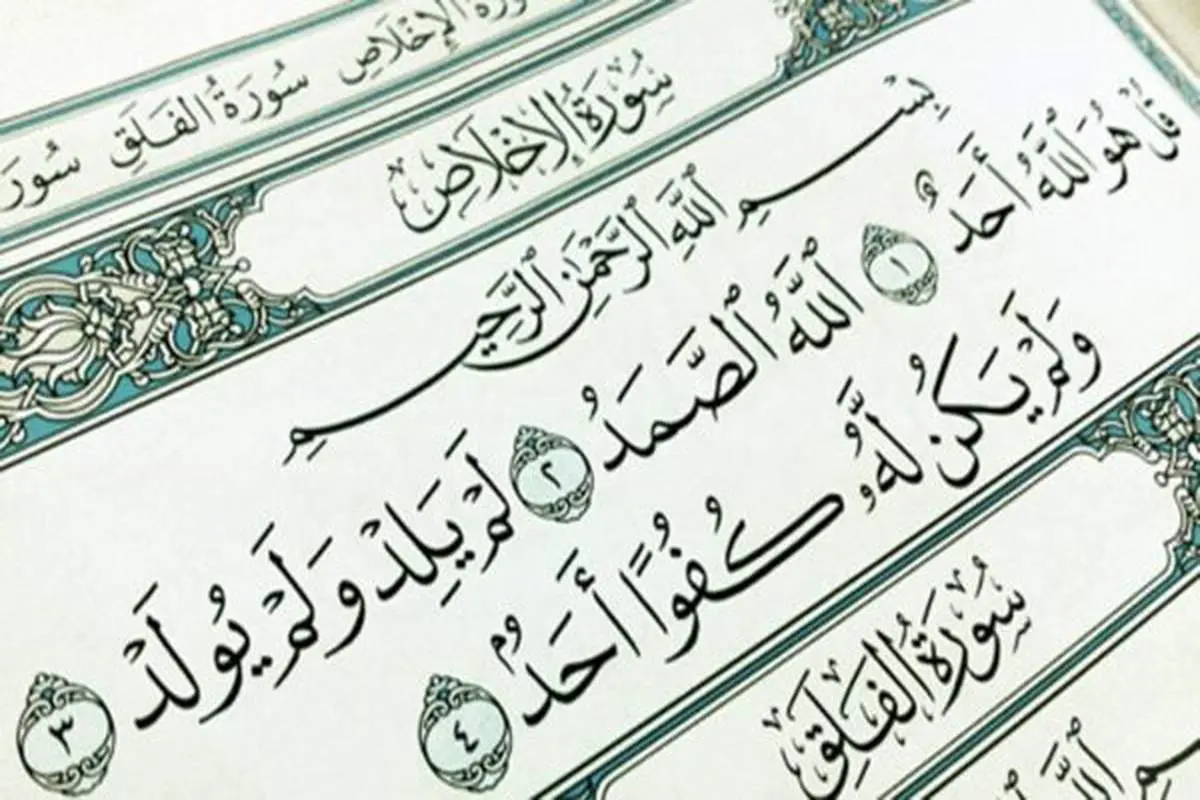 سُورَةُ الإِخْلَاصِ سُورَةُ الفَلَقِ
سُورَةُ الإِخْلَاصِ
بِسْمِ ٱللَّهِ ٱلرَّحْمَٰنِ ٱلرَّحِيمِ
قُلْ هُوَ ٱللَّهُ أَحَدٌ ١ ٱللَّهُ ٱلصَّمَدُ ٢ لَمْ يَلِدْ وَلَمْ يُولَدْ ٣
وَلَمْ يَكُن لَّهُۥ كُفُوًا أَحَدٌۢ ٤
سُورَةُ الفَلَقِ